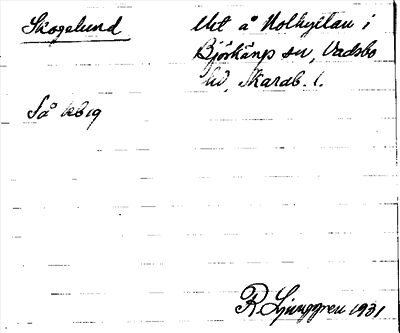 Skogslund
Utt å Holkyttan i
Björkängs sn, Vadsbo
hd, Skarab. l.
Så kb 19
R. Ljunggren 1931